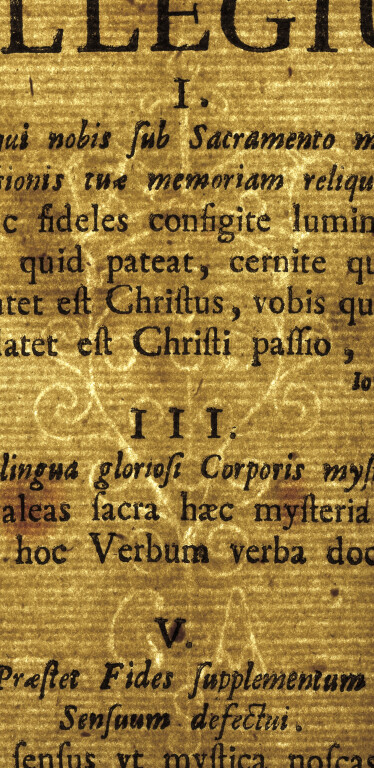 LLEGIU
I.
qui nobis ſub Sacramento m
sionis tuæ memoriam reliqu
c fideles configite lumin
quid pateat, cernite qu
tet eſt Chriſtus, vobis qu
latet eſt Chriſti paſſio,
Io
III.
lingua glorioſi Corporis myſ
aleas ſacra hæc myſteria
hoc Verbum verba doc
V.
Præſtet Fides ſupplementum
Senſuum defectui.
ſenſus vt myſtica noſcas